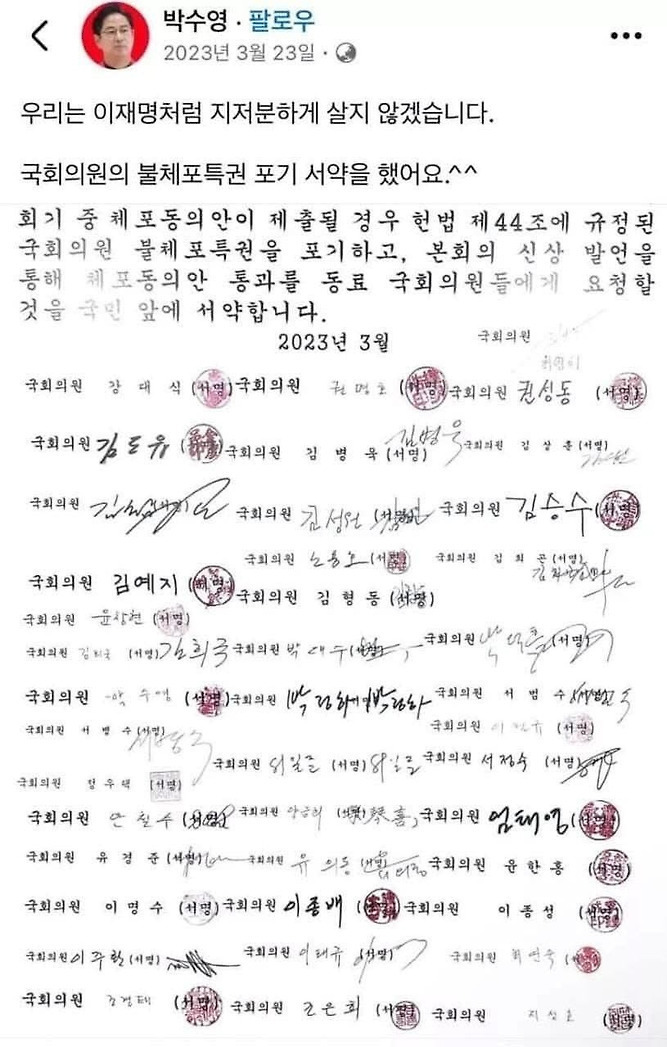 박수영 · 팔로우
2023년 3월 23일 ·
우리는 이재명처럼 지저분하게 살지 않겠습니다.
국회의원의 불체포특권 포기 서약을 했어요.^^
회기 중 체포동의안이 제출될 경우 헌법 제44조에 규정된
국회의원 불체포특권을 포기하고, 본회의 신상 발언을
통해 체포동의안 통과를 동료 국회의원들에게 요청할
것을 국민 앞에 서약합니다.
2023년 3월
국회의원
국회의원 강대식 (서명) 국회의원 권명호 (서명) 국회의원 권성동 (서명)
국회의원 김도읍 (서명) 국회의원 김병욱 (서명) 김병욱 국회의원 김상훈 (서명)
국회의원 국회의원 김성원 (서명) 국회의원 김승수 (서명)
국회의원 (서명) 국회의원 김희곤 (서명)
국회의원 김예지 (서명) 국회의원 김형동 (서명)
국회의원 윤상현 (서명)
국회의원 김희국 (서명) 김희국 국회의원 박대수 (서명) 국회의원 박덕흠 (서명)
국회의원 박수영 (서명) 국회의원 박형수 국회의원 서범수 (서명)
국회의원 서병수 (서명) 국회의원 (서명)
국회의원 (서명) 국회의원 서정숙 (서명)
국회의원 정우택 (서명)
국회의원 안철수 (서명) 국회의원 양금희 (서명) 국회의원 엄태영 (서명)
국회의원 유경준 (서명) 국회의원 유의동 (서명) 국회의원 윤한홍 (서명)
국회의원 이명수 (서명) 국회의원 이종배 (서명) 국회의원 이종성 (서명)
국회의원 이주환 (서명) 국회의원 이태규 (서명) 국회의원 최연숙 (서명)
국회의원 조경태 (서명) 국회의원 조은희 (서명) 국회의원 지성호 (서명)